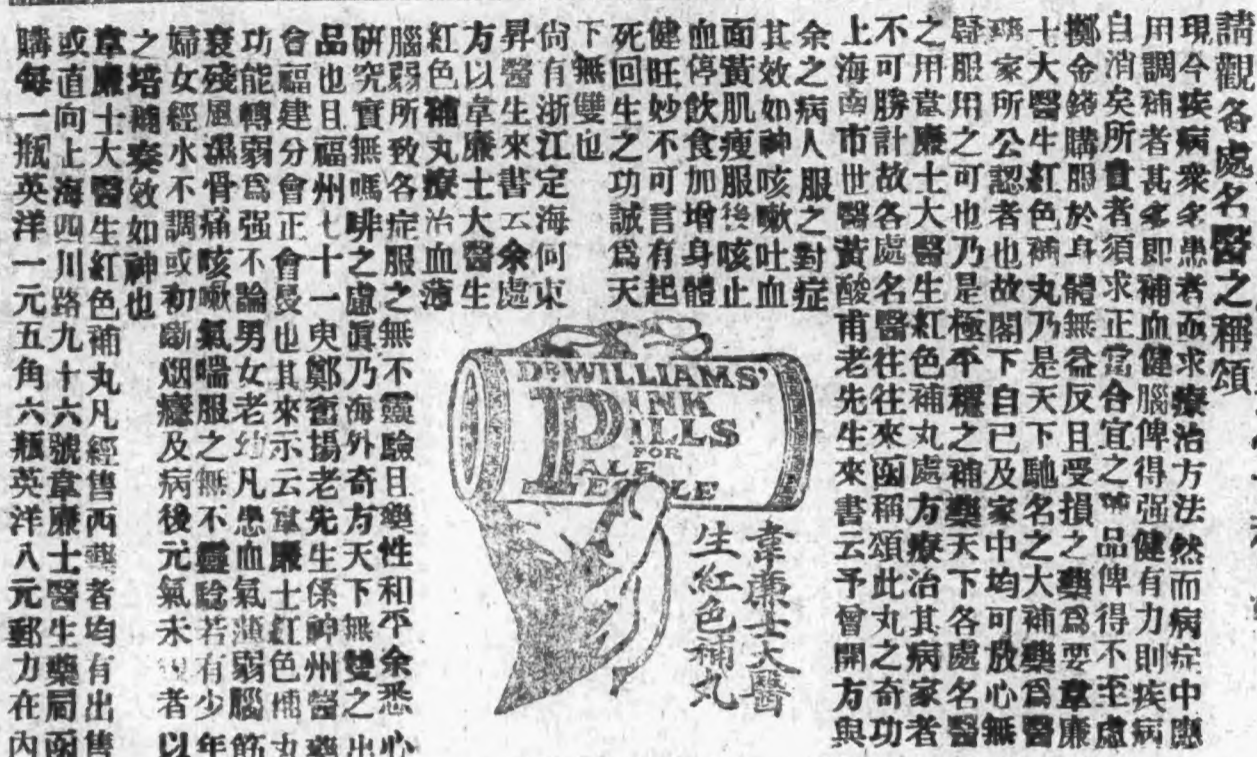 請觀各處名醫之稱頌
現今疾病衆多患者而求療治方法然而病症中應
用調補者甚多即補血健腦俾得强健有力則疾病
自消矣所貴者須求正當合宜之藥品俾得不至虛
擲金錢購服於身體無益反且受損之藥爲要韋廉
士大醫生紅色補丸乃是天下馳名之大補藥爲醫
藥家所公認者也故閣下自己及家中均可放心無
疑服用之可也乃是極平穩之補藥天下各處名醫
之用韋廉士大醫生紅色補丸處方療治其病家者
不可勝計故各處名醫往往來函稱頌此丸之奇功
上海南市世醫黃酸甫老先生來書云予曾開方與
余之病人服之對症
其效如神咳嗽吐血
面黃肌瘦服後咳止
血停飲食加增身體
健旺妙不可言有起
死回生之功誠爲天
下無雙也
尙有浙江定海何東
昇醫生來書云余處
方以韋廉士大醫生
紅色補丸療治血薄
腦弱所致各症服之無不靈驗且藥性和平余悉心
研究實無嗎啡之慮眞乃海外奇方天下無雙之出
品也且福州七十一叟鄭奮揚老先生係神州醫藥
會福建分會正會長也其來示云韋廉士紅色補丸
功能轉弱爲强不論男女老幼凡患血氣薄弱腦筋
衰殘風濕骨痛咳嗽氣喘服之無不靈驗若有少年
婦女經水不調或初斷烟癮及病後元氣未者以
之培補奏效如神也
韋廉士大醫生紅色補丸凡經售西藥者均有出售
或直向上海四川路九十六號韋廉士醫生藥局函
購每一瓶英洋一元五角六瓶英洋八元郵力在內
DR WILLIAMS'
PINK
PILLS
FOR
PALE
PEOPLE
韋廉士大醫
生紅色補丸